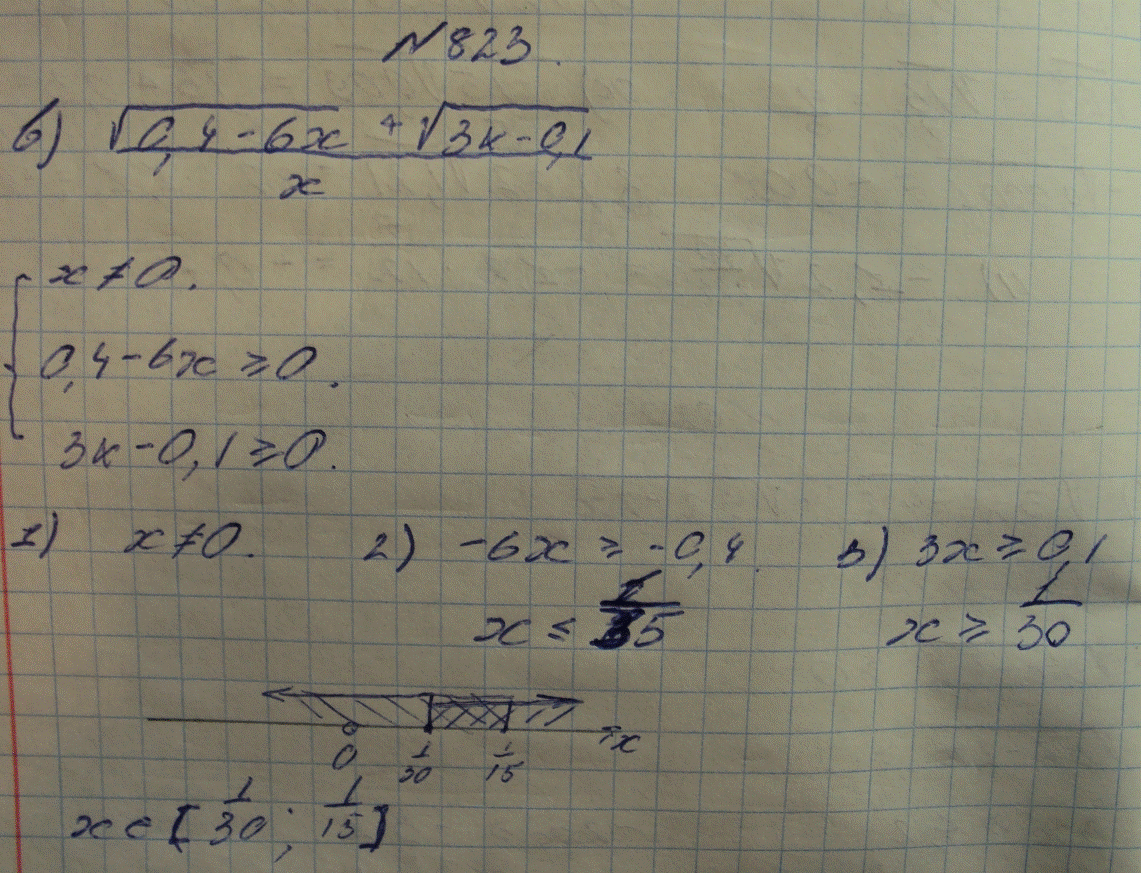 №823.
б) √(0,4-6x) + √(3x-0,1)
x
x≠0.
0,4-6x ≥ 0.
3x-0,1 ≥ 0.
1) x≠0. 2) -6x ≥ -0,4. 3) 3x ≥ 0,1
x ≤ 1/15 x ≥ 1/30
0 1/30 1/15 x
x ∈ [1/30; 1/15]